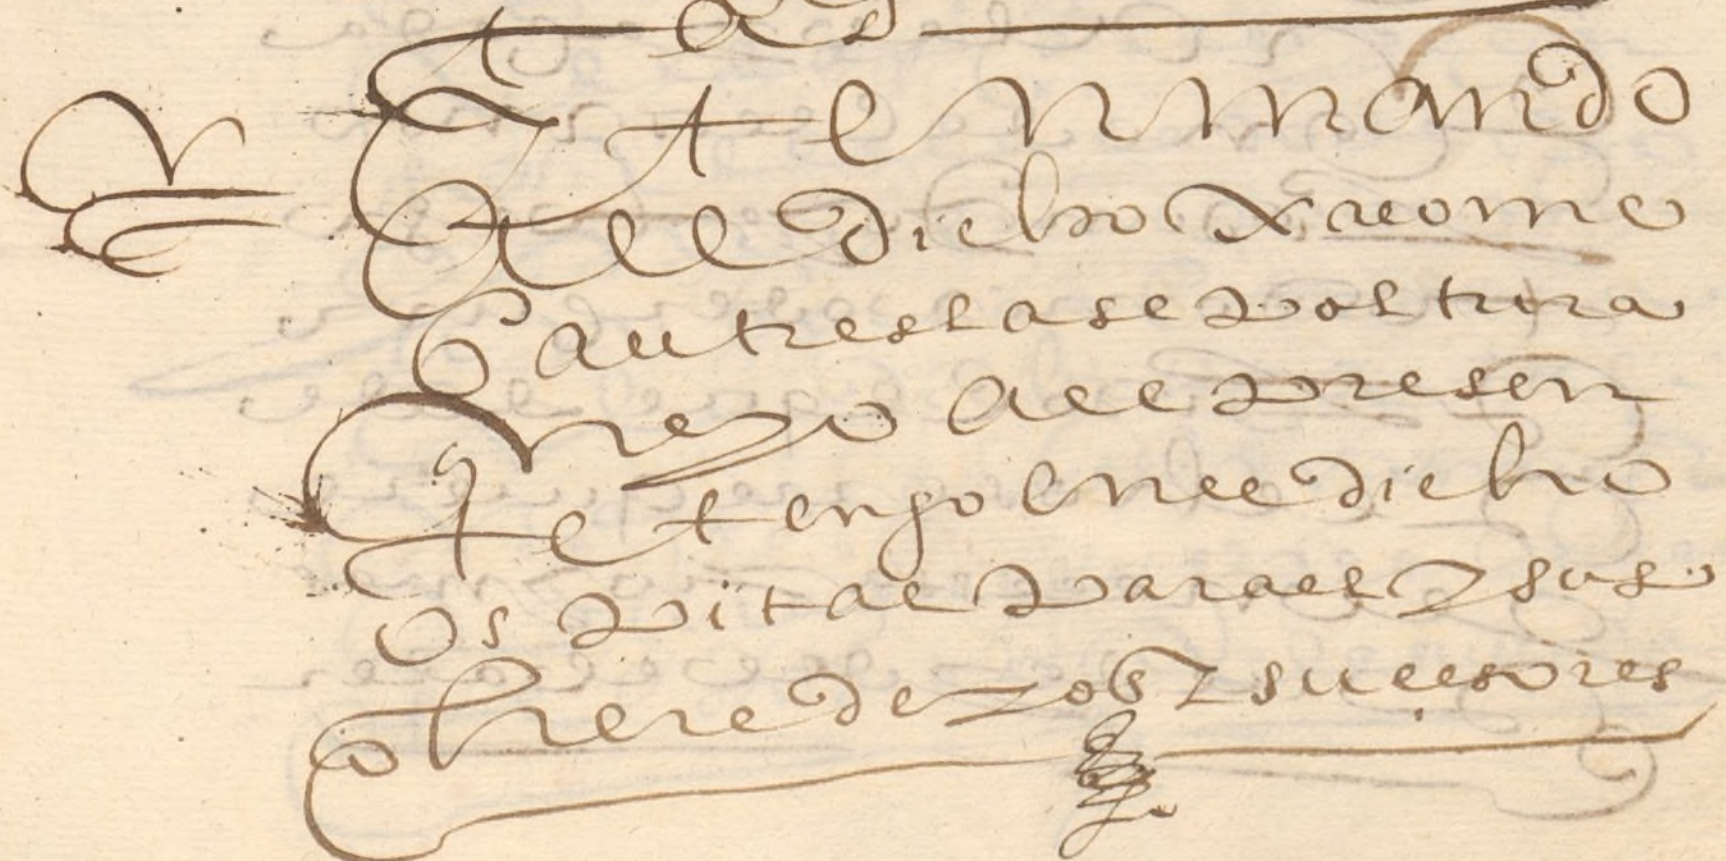 Yten mando
al dicho xacome
bautresla sepoltura
q yo al presen
te tengo en el dicho
ospital para el y sus
herederos y sucesores